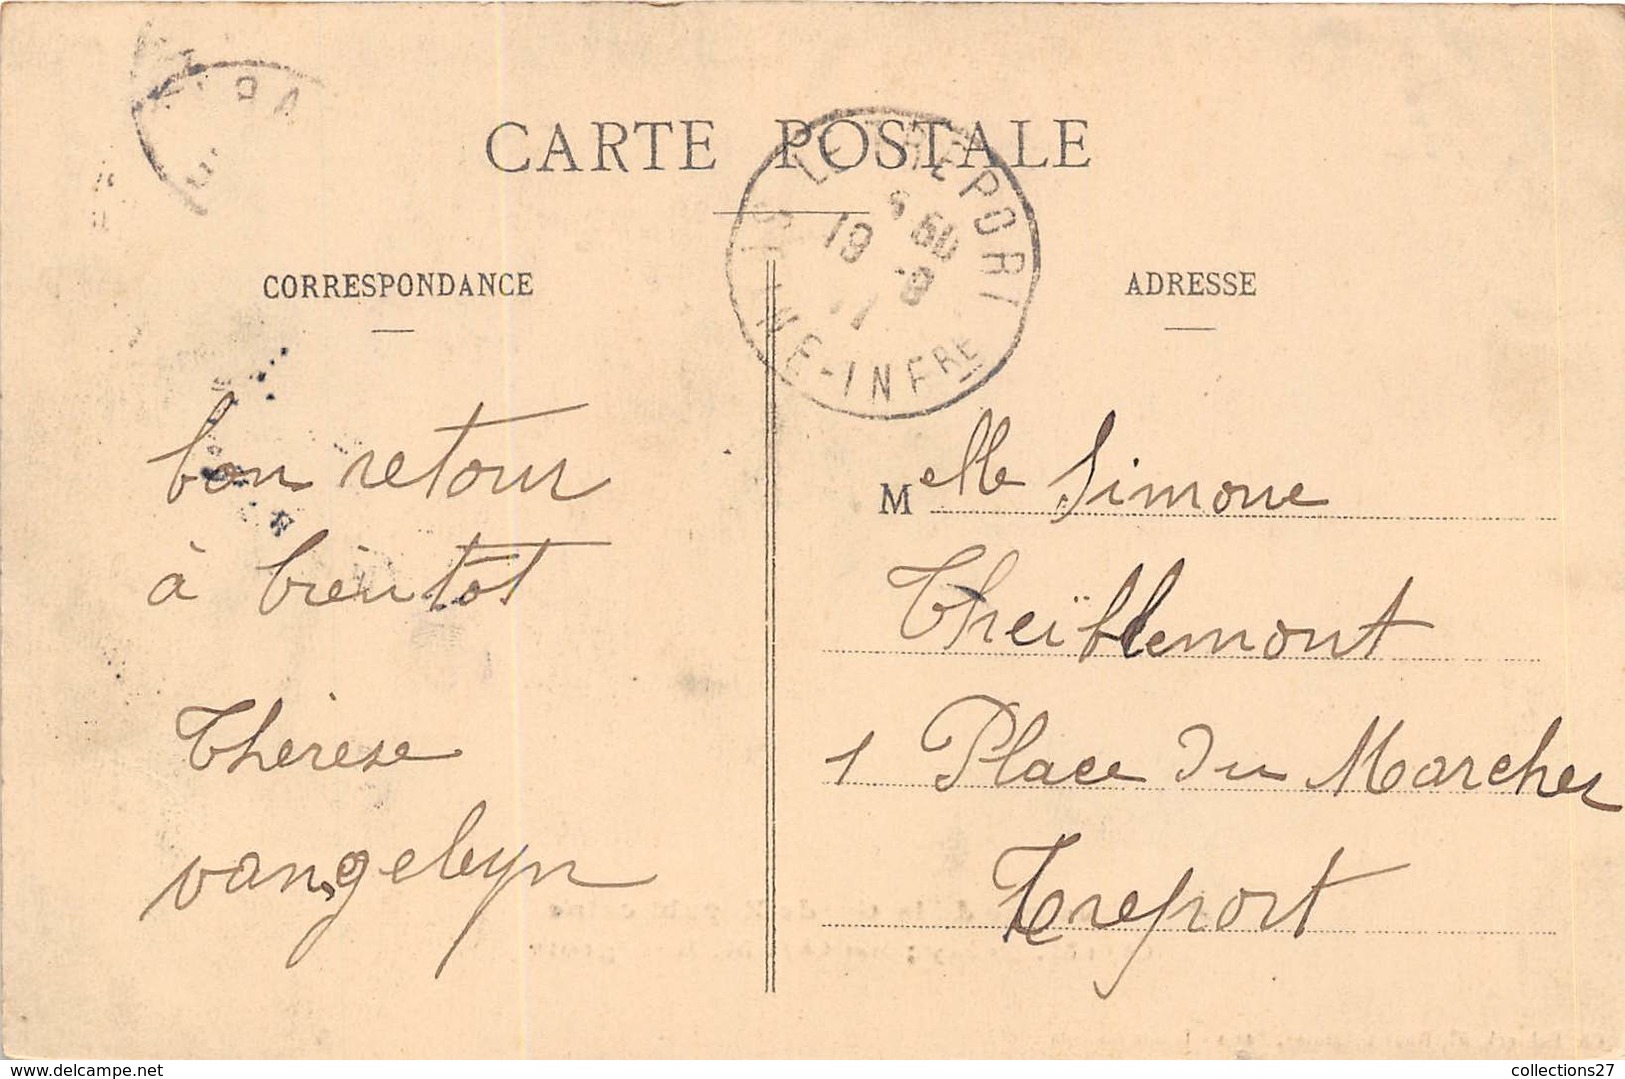 CARTE POSTALE
LE TREPORT
SEINE-INFRE
18
CORRESPONDANCE
ADRESSE
bon retour
à bientot
Thérèse
vangelyn
Melle Simone
Theïblemont
1 Place Du Marcher
Treport
collections27